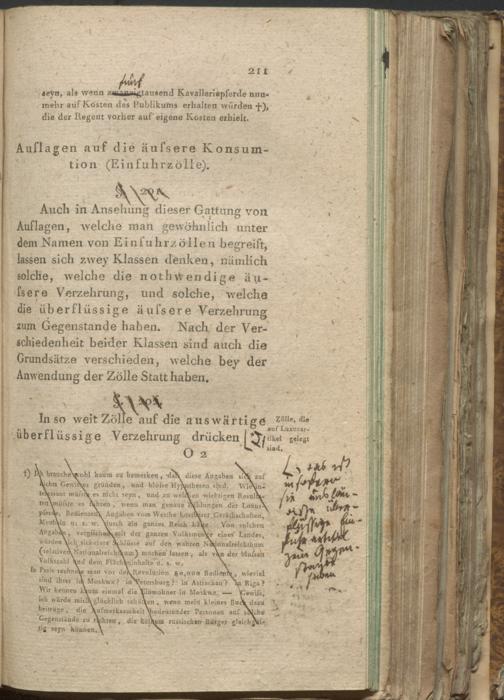 211
fünf
seyn, als wenn zwanzigtausend Kavalleriepferde nun-
mehr auf Kosten des Publikums erhalten würden †),
die der Regent vorher auf eigene Kosten erhielt.
Auflagen auf die äufsere Konsum-
tion (Einfuhrzölle).
§. 201
Auch in Ansehung dieser Gattung von
Auflagen, welche man gewöhnlich unter
dem Namen von Einfuhrzöllen begreift,
lassen sich zwey Klassen denken, nämlich
solche, welche die nothwendige äu-
fsere Verzehrung, und solche, welche
die überflüssige äufsere Verzehrung
zum Gegenstande haben. Nach der Ver-
schiedenheit beider Klassen sind auch die
Grundsätze verschieden, welche bey der
Anwendung der Zölle Statt haben.
§.
In so weit Zölle auf die auswärtige
überflüssige Verzehrung drücken
Zölle, die
auf Luxusar-
tikel gelegt
sind.
O 2
†) Ich brauche wohl kaum zu bemerken, daß diese Angaben sich auf
nichts Gewisses gründen, und bloße Hypothesen sind. Wie in-
teressant müßte es nicht seyn, und zu welchen wichtigen Resulta-
ten müßte es führen, wenn man genaue Zählungen der Luxus-
pferde, Bedienten, Angaben von Werthe kostbarer Geräthschaften,
Meubeln u. s. w. durch ein ganzes Reich hätte. Von solchen
Angaben, verglichen mit der ganzen Volksmenge eines Landes,
würden sich sicherere Schlüsse auf den wahren Nationalreichthum
(relativen Nationalreichthum) machen lassen, als von der bloßen
Volkszahl und dem Flächeninhalte u. s. w.
In Paris rechnete man vor der Revolution 40,000 Bediente, wieviel
sind ihrer in Moskwa? in Petersburg? in Astrachan? in Riga?
Wir kennen kaum einmal die Einwohner in Moskwa. — Gewiß,
ich würde mich glücklich schätzen, wenn mein kleines Buch dazu
beitrüge, die Aufmerksamkeit bedeutender Personen auf solche
Gegenstände zu richten, die keinem russischen Bürger gleichgül-
tig seyn können.
das ist
in sofern
sie auslän-
dische über-
flüssige
zum Gegen-
stande
haben